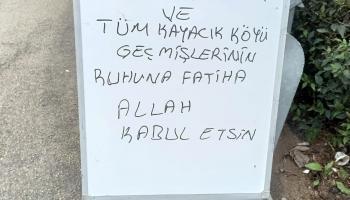 VE
TÜM KAYACIK KÖYÜ
GEÇMİŞLERİNİN
RUHUNA FATİHA
ALLAH
KABUL ETSİN